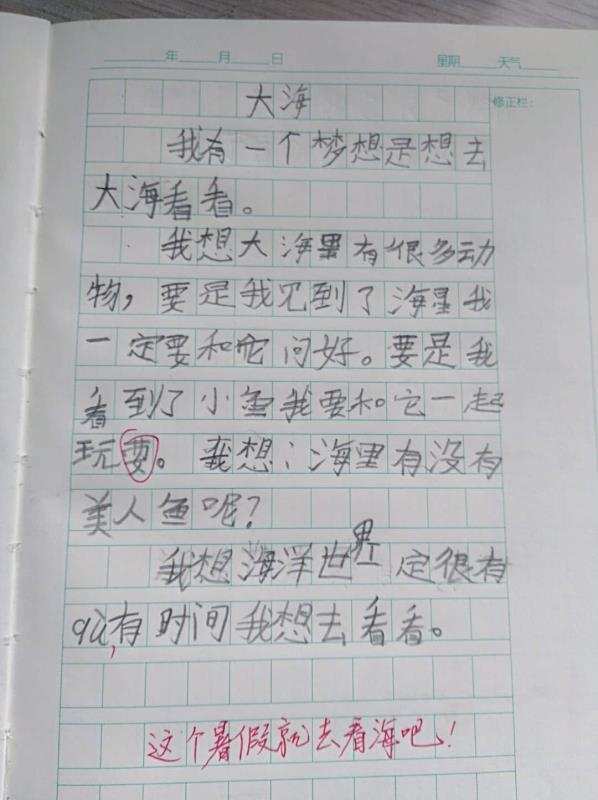 年 月 日 星期 天气
修正栏:
大海
我有一个梦想是想去
大海看看。
我想大海里有很多动
物,要是我见到了海星我
一定要和它问好。要是我
看到了小鱼我要和它一起
玩耍。我想:海里有没有
美人鱼呢?
我想海洋世界一定很有
qù,有时间我想去看看。
这个暑假就去看海吧!